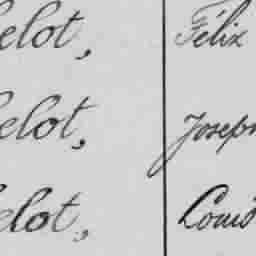 elot, Félix
elot, Joseph
elot, Louis